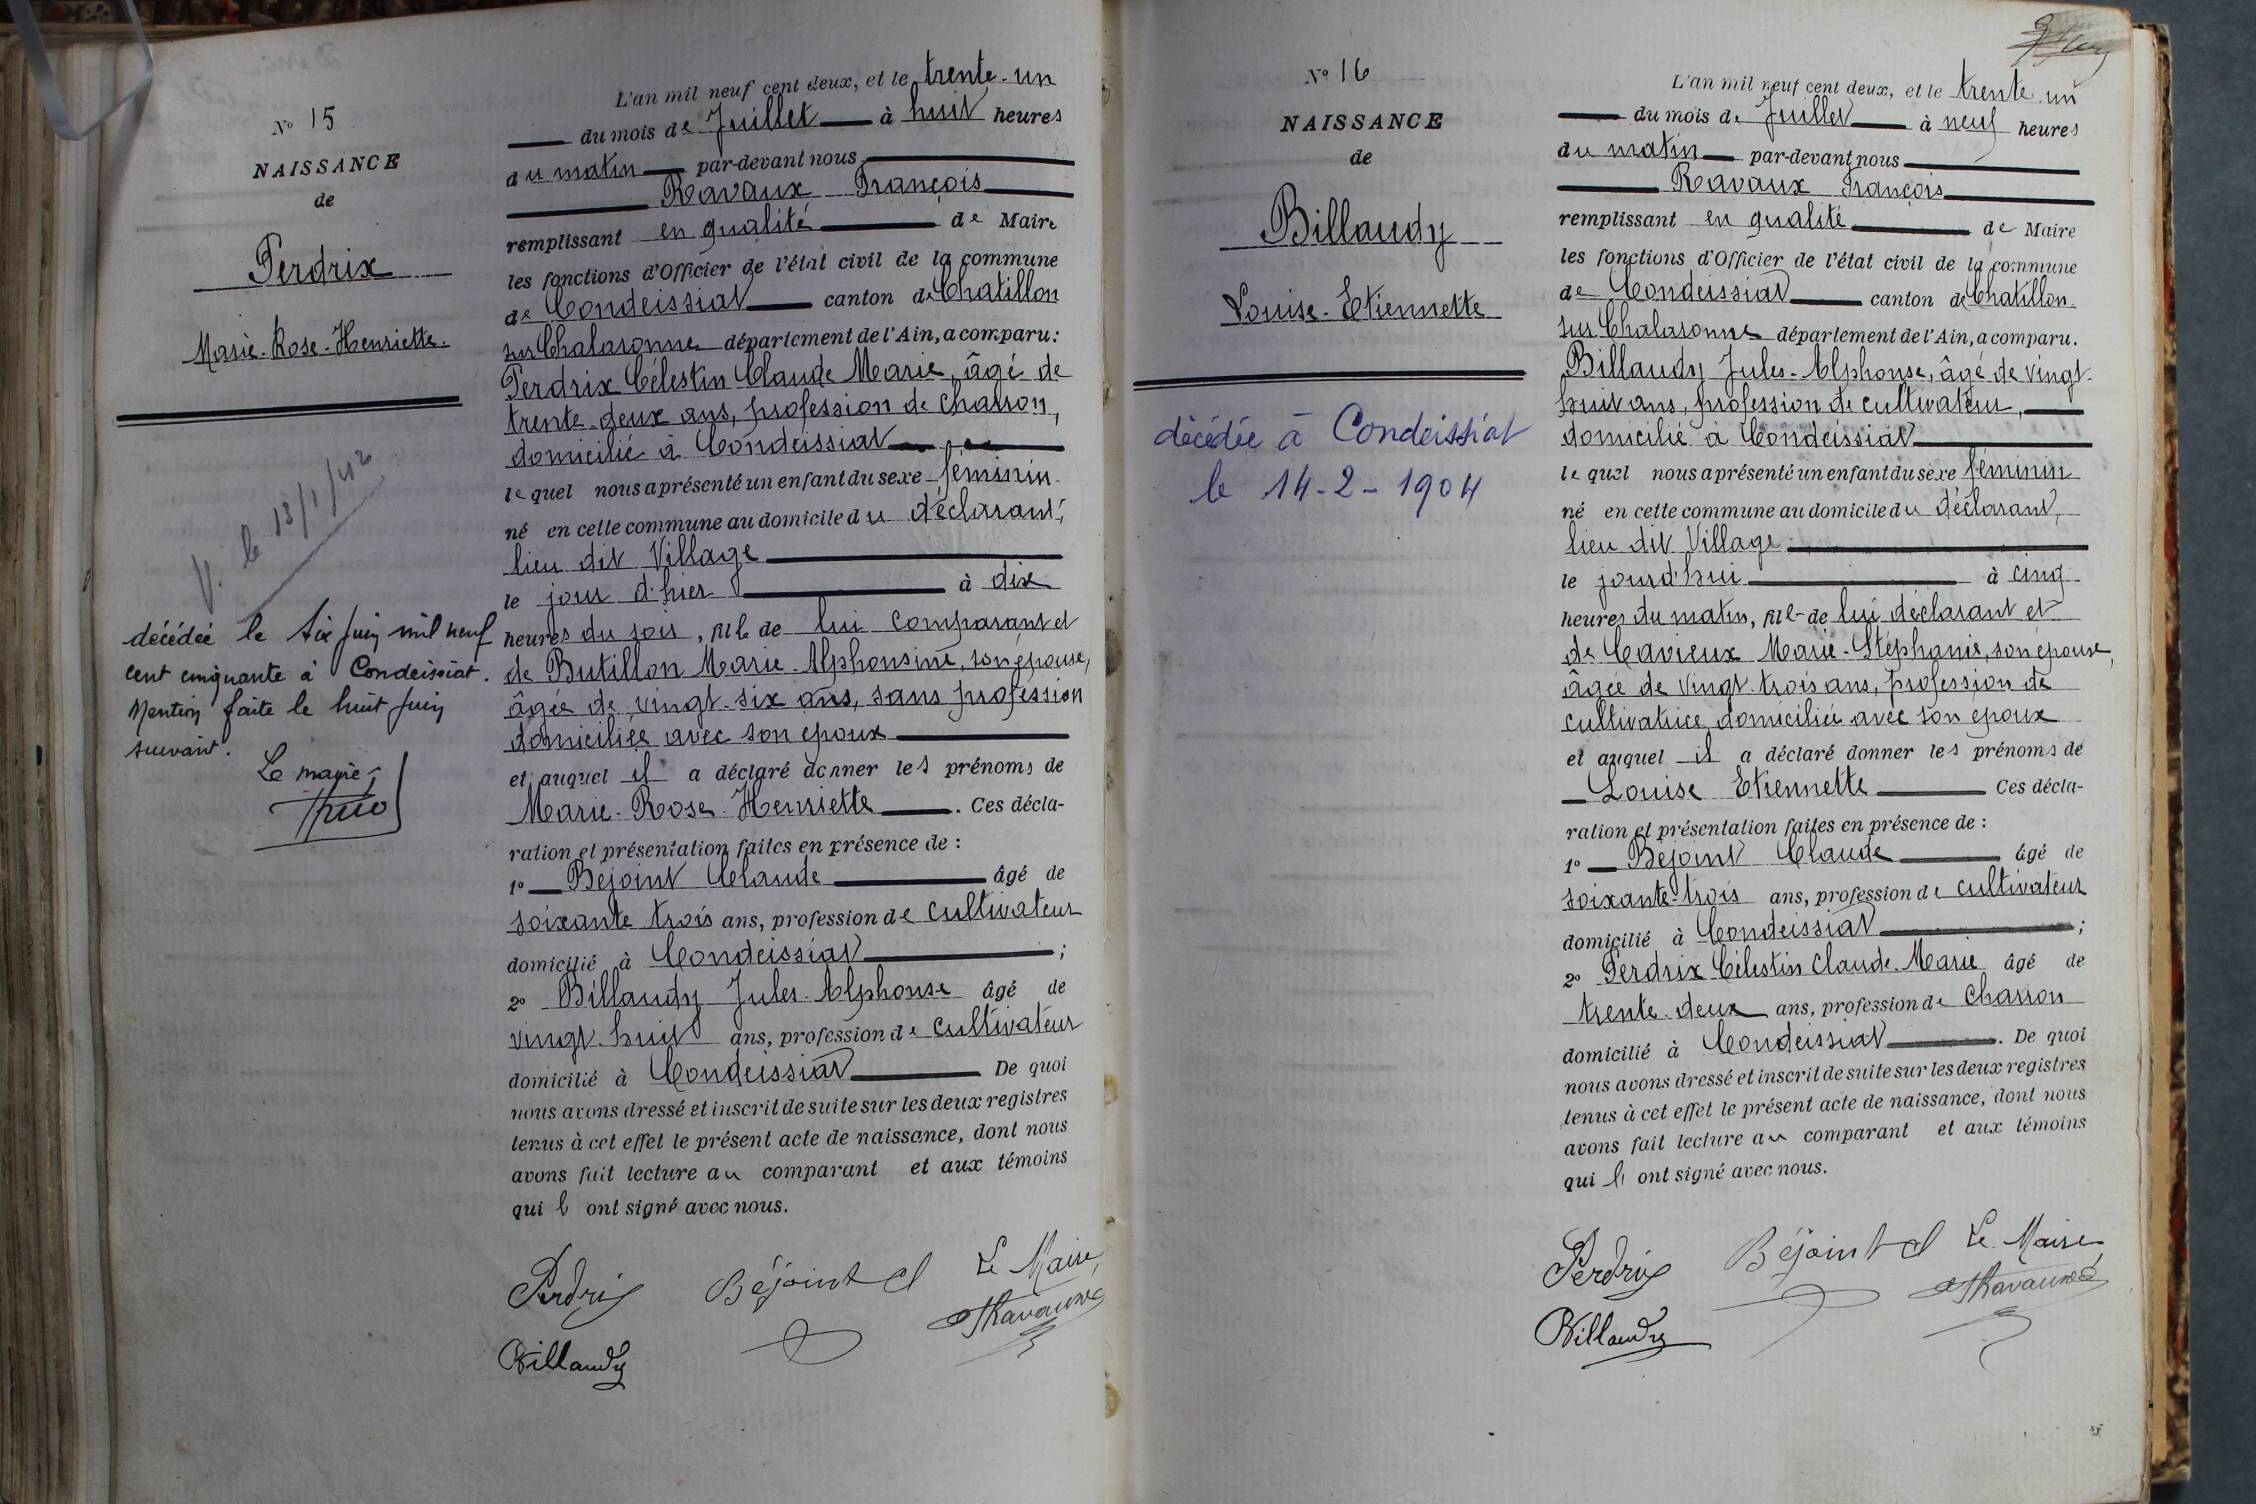 N° 15
NAISSANCE
de
Perdrix
Marie-Rose-Henriette.
V. le 13/1/42
décédée le six juin mil neuf
cent cinquante à Condeissiat.
Mention faite le huit juin
suivant.
Le maire,
L'an mil neuf cent deux, et le trente-un
du mois de Juillet à huit heures
du matin par-devant nous
Ravaux François
remplissant en qualité de Maire
les fonctions d'Officier de l'état civil de la commune
de Condeissiat canton de Chatillon
sur Chalaronne département de l'Ain, a comparu:
Perdrix Célestin Claude Marie, âgé de
trente-deux ans, profession de charron,
domicilié à Condeissiat
lequel nous a présenté un enfant du sexe féminin
né en cette commune au domicile du déclarant,
lieu dit Village
le jour d'hier à dix
heures du soir, fille de lui comparant et
de Butillon Marie-Alphonsine, son épouse,
âgée de vingt-six ans, sans profession
domiciliée avec son époux
et auquel il a déclaré donner les prénoms de
Marie-Rose-Henriette. Ces décla-
ration et présentation faites en présence de :
1° Béjoint Claude âgé de
soixante trois ans, profession de cultivateur
domicilié à Condeissiat ;
2° Billaudy Jules-Alphonse âgé de
vingt-huit ans, profession de cultivateur
domicilié à Condeissiat De quoi
nous avons dressé et inscrit de suite sur les deux registres
tenus à cet effet le présent acte de naissance, dont nous
avons fait lecture au comparant et aux témoins
qui l ont signé avec nous.
Perdrix Béjoint Cl Le Maire,
FRavaux
Billaudy
N° 16
NAISSANCE
de
Billaudy
Louise-Etiennette
décédée à Condeissiat
le 14-2-1904
L'an mil neuf cent deux, et le trente-un
du mois de Juillet à neuf heures
du matin par-devant nous
Ravaux François
remplissant en qualité de Maire
les fonctions d'Officier de l'état civil de la commune
de Condeissiat canton de Chatillon
sur Chalaronne département de l'Ain, a comparu.
Billaudy Jules-Alphonse, âgé de vingt-
huit ans, profession de cultivateur,
domicilié à Condeissiat
lequel nous a présenté un enfant du sexe féminin
né en cette commune au domicile du déclarant,
lieu dit Village
le jourd'hui à cinq
heures du matin, fille de lui déclarant et
de Cavieux Marie-Stéphanie, son épouse,
âgée de vingt-trois ans, profession de
cultivatrice domiciliée avec son époux
et auquel il a déclaré donner les prénoms de
Louise Etiennette Ces décla-
ration et présentation faites en présence de :
1° Béjoint Claude âgé de
soixante-trois ans, profession de cultivateur
domicilié à Condeissiat ;
2° Perdrix Célestin Claude-Marie âgé de
trente-deux ans, profession de charron
domicilié à Condeissiat. De quoi
nous avons dressé et inscrit de suite sur les deux registres
tenus à cet effet le présent acte de naissance, dont nous
avons fait lecture au comparant et aux témoins
qui l ont signé avec nous.
Perdrix Béjoint Cl Le Maire,
FRavaux
Billaudy